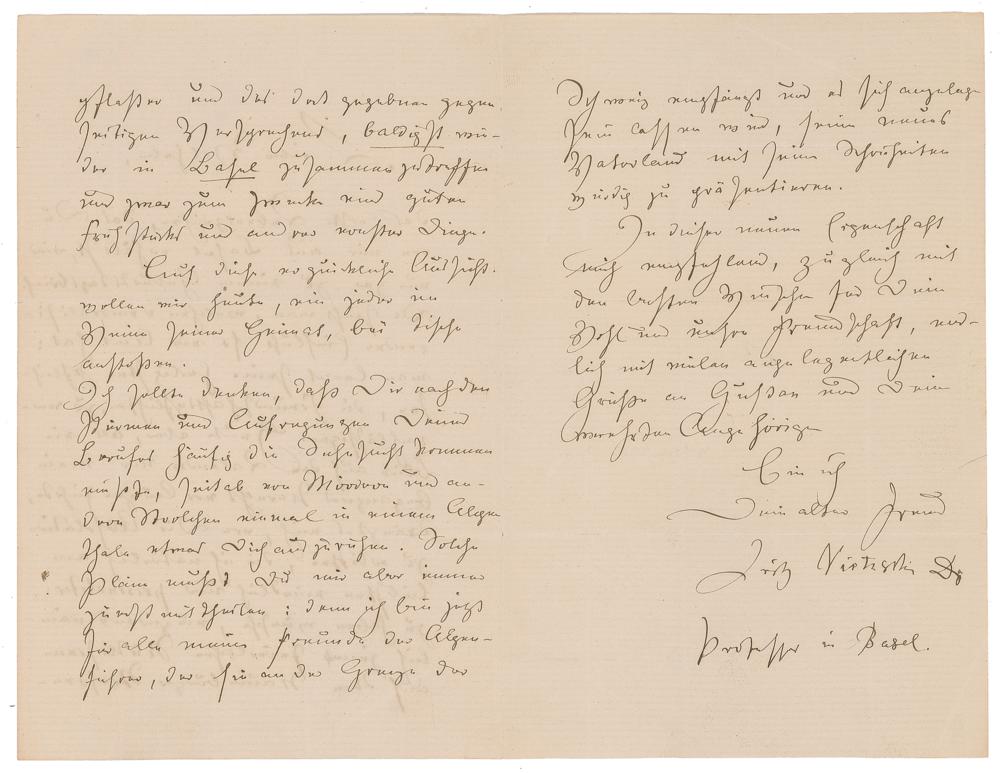 pflaster und des dort gegebenen gegen
seitigen Versprechens, baldigst wie-
der in Basel zusammenzutreffen
und zwar zum Zwecke eines guten
Frühstücks und anderer ernster Dinge.
Auf diese erquickliche Aussicht
wollen wir heute, ein jeder im
Weine seiner Heimat, bei Tische
anstoßen.
Ich sollte denken, daß Dir nach den
Stürmen und Aufregungen Deines
Berufes häufig die Sehnsucht kommen
müsste, seitab von Mördern und an-
dern Strolchen einmal in einem Alpen
thale etwas Dich auszuruhen. Solche
Pläne mußt Du mir aber immer
zuerst mittheilen: denn ich bin jetzt
für alle meine Freunde der Alpen-
führer, der sie an der Grenze der
Schweiz empfängt und es sich angelegen
sein lassen wird, sein neues
Vaterland mit seinen Schönheiten
würdig zu präsentieren.
In dieser neuen Eigenschaft
mich empfehlend, zugleich mit
den besten Wünschen für Dein
Wohl und unsre Freundschaft, end-
lich mit vielen angelegentlichen
Grüßen an Gustav und Deine
verehrten Angehörigen
bin ich
Dein alter Freund
Fritz Nietzsche Dr
Professor in Basel.